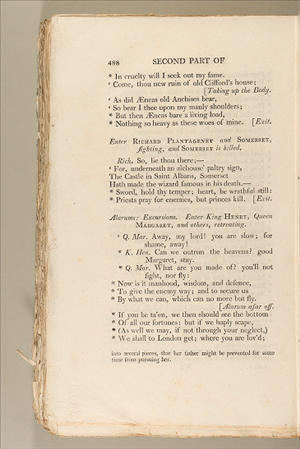 488 SECOND PART OF
* In cruelty will I seek out my fame.
‘ Come, thou new ruin of old Clifford's house;
[Taking up the Body.
‘ As did Æneas old Anchises bear,
‘ So bear I thee upon my manly shoulders;
* But then Æneas bare a living load,
* Nothing so heavy as these woes of mine. [Exit.
Enter RICHARD PLANTAGENET and SOMERSET,
fighting, and SOMERSET is killed.
Rich. So, lie thou there;—
‘ For, underneath an alehouse' paltry sign,
The Castle in Saint Albans, Somerset
Hath made the wizard famous in his death.—
* Sword, hold thy temper; heart, be wrathful still:
* Priests pray for enemies, but princes kill. [Exit.
Alarums: Excursions. Enter King HENRY, Queen
MARGARET, and others, retreating.
‘ Q. Mar. Away, my lord! you are slow; for
shame, away!
* K. Hen. Can we outrun the heavens? good
Margaret, stay.
* Q. Mar. What are you made of? you'll not
fight, nor fly:
* Now is it manhood, wisdom, and defence,
* To give the enemy way; and to secure us
* By what we can, which can no more but fly.
[Alarum afar off.
* If you be ta'en, we then should see the bottom
* Of all our fortunes: but if we haply scape,
* (As well we may, if not through your neglect,)
* We shall to London get; where you are lov'd;
into several pieces, that her father might be prevented for some
time from pursuing her.